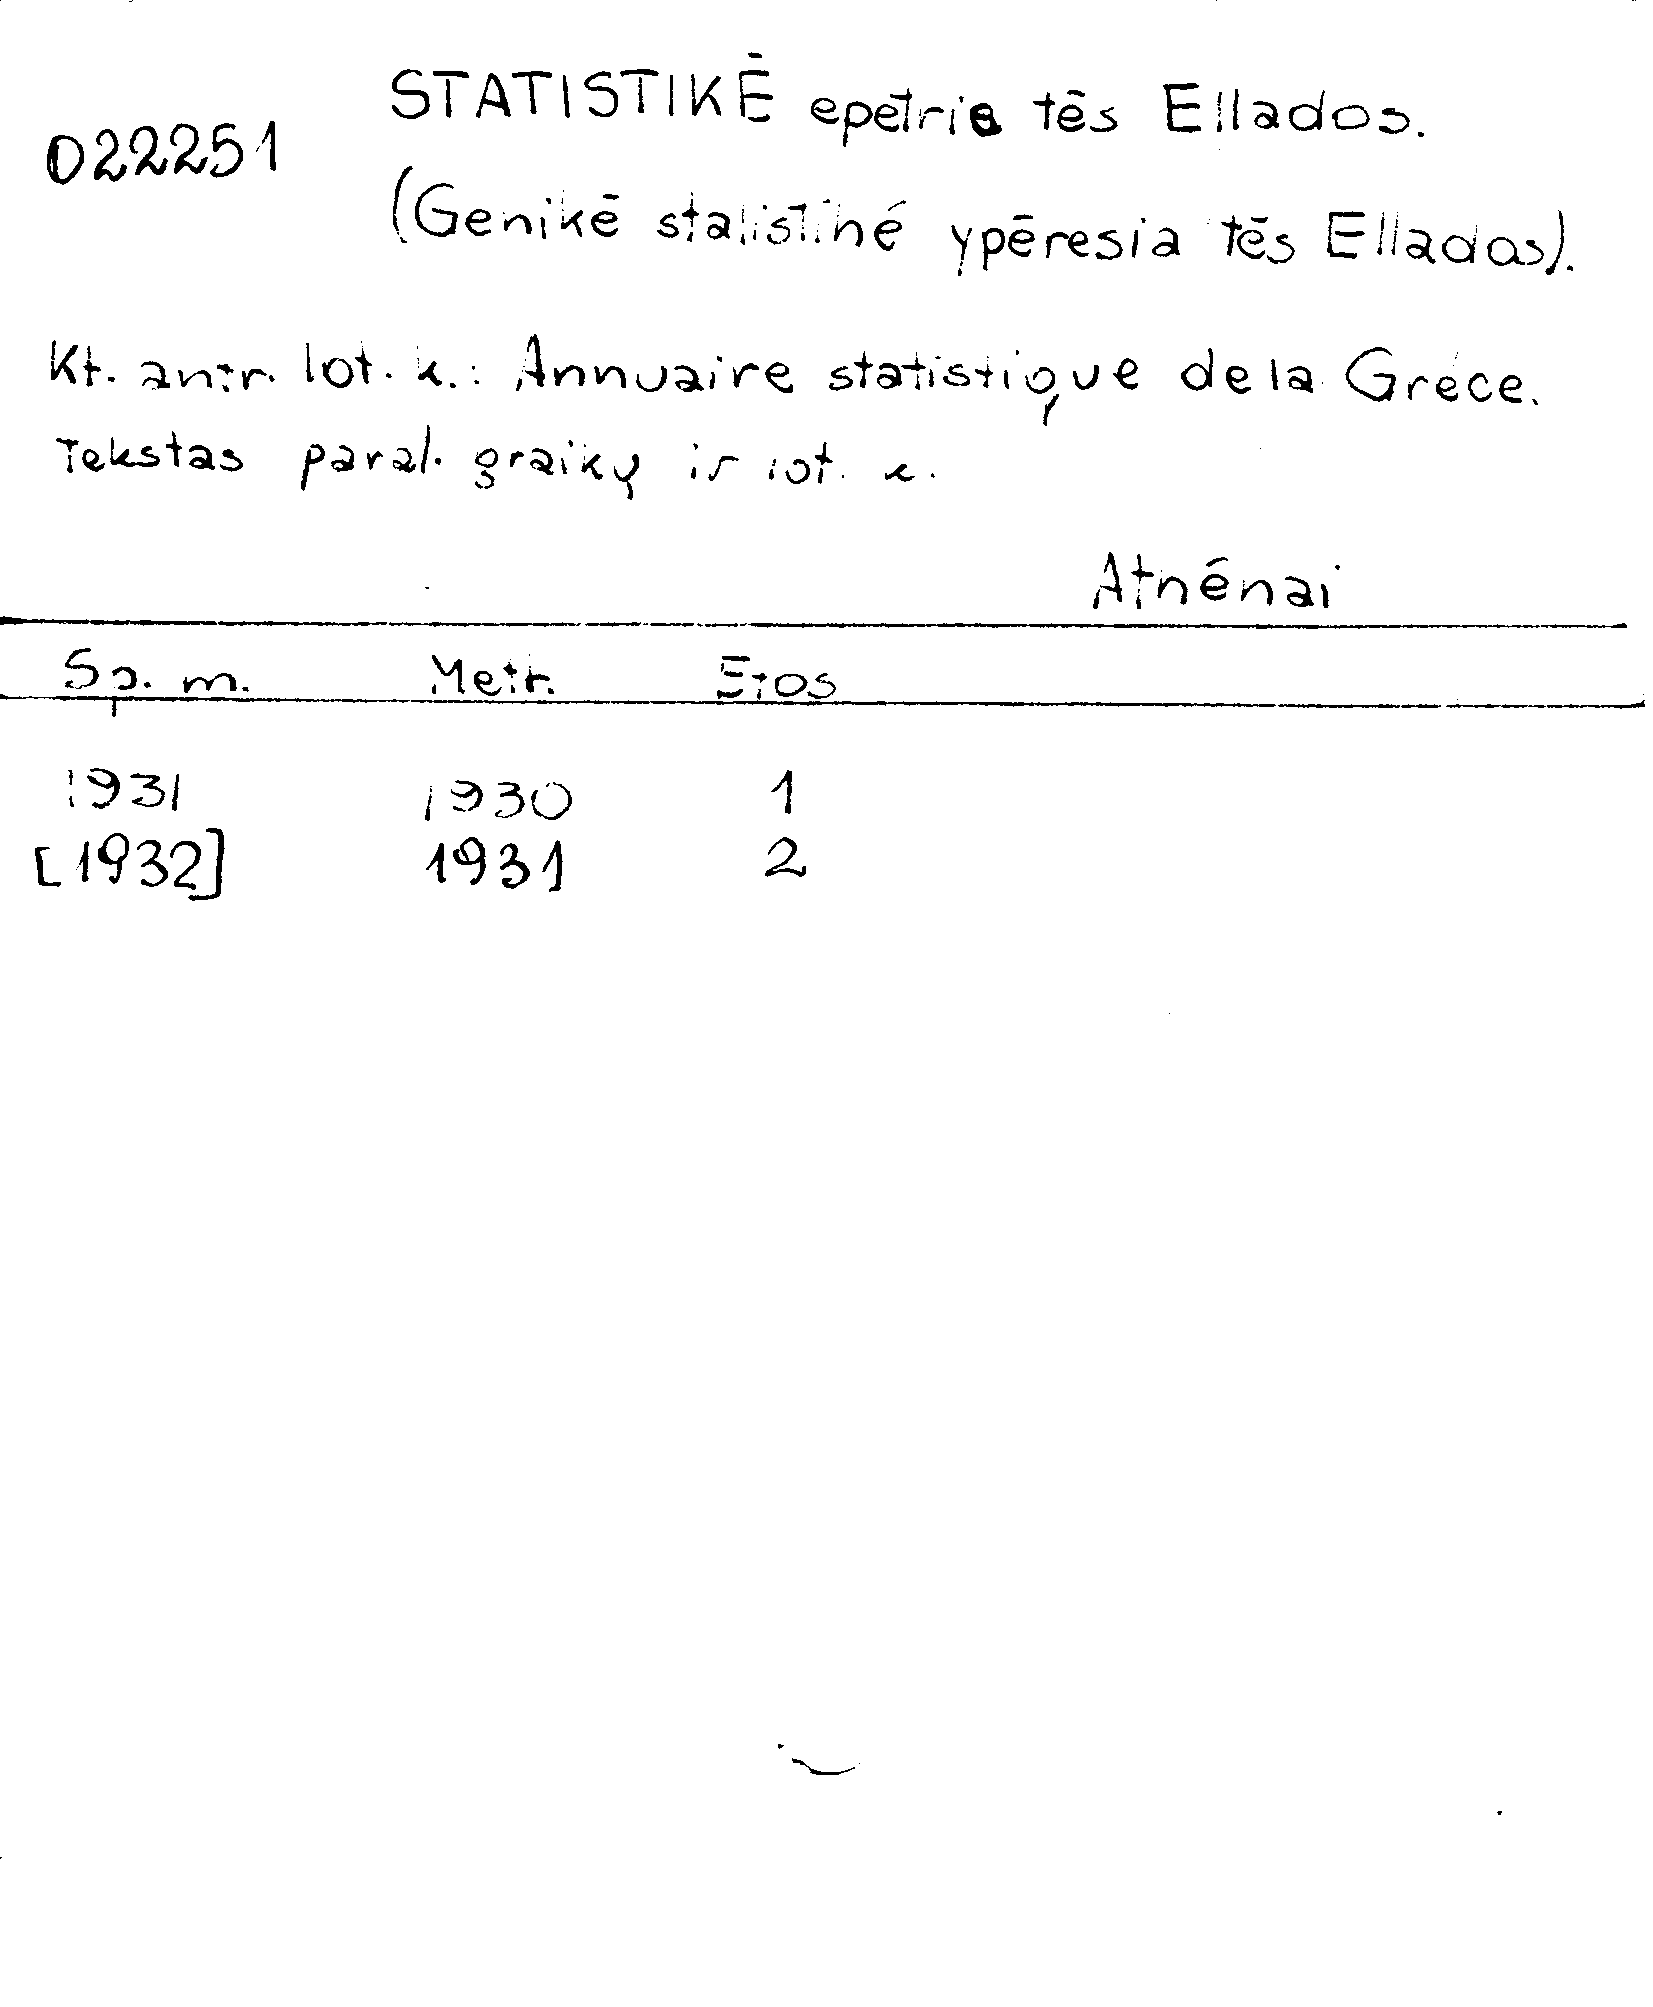 STATISTIKĒ epetris tēs Ellados.
022251
(Genikē statistikē ypēresia tēs Ellados).
Kt. antr. lot. k.: Annuaire statistique de la Gréce.
Tekstas paral. graikų ir lot. k.
Athēnai
Sp. m. Metr. Etos
1931 1930 1
[1932] 1931 2